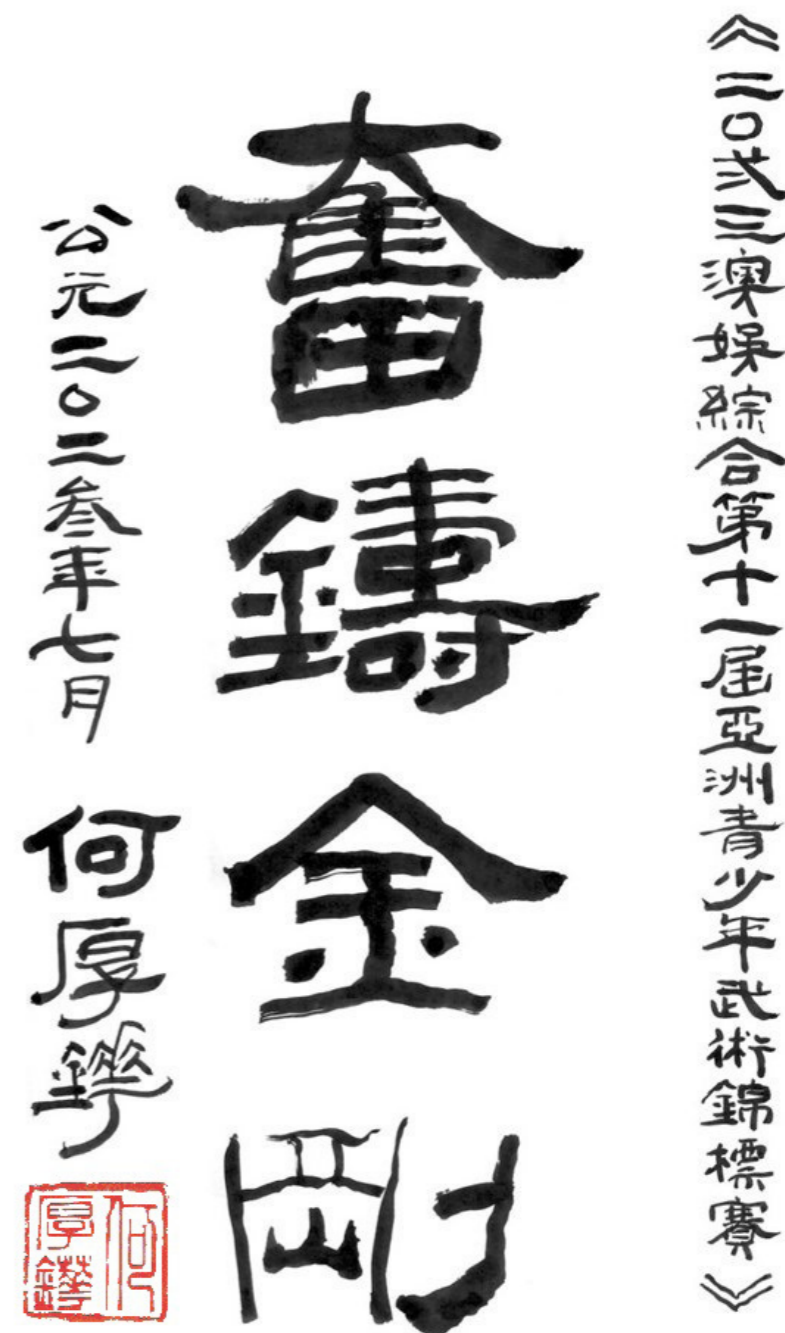 《二〇弐三澳娛綜合第十一屆亞洲青少年武術錦標賽》
奮鑄金剛
公元二〇二叁年七月
何厚鏵
何厚鏵